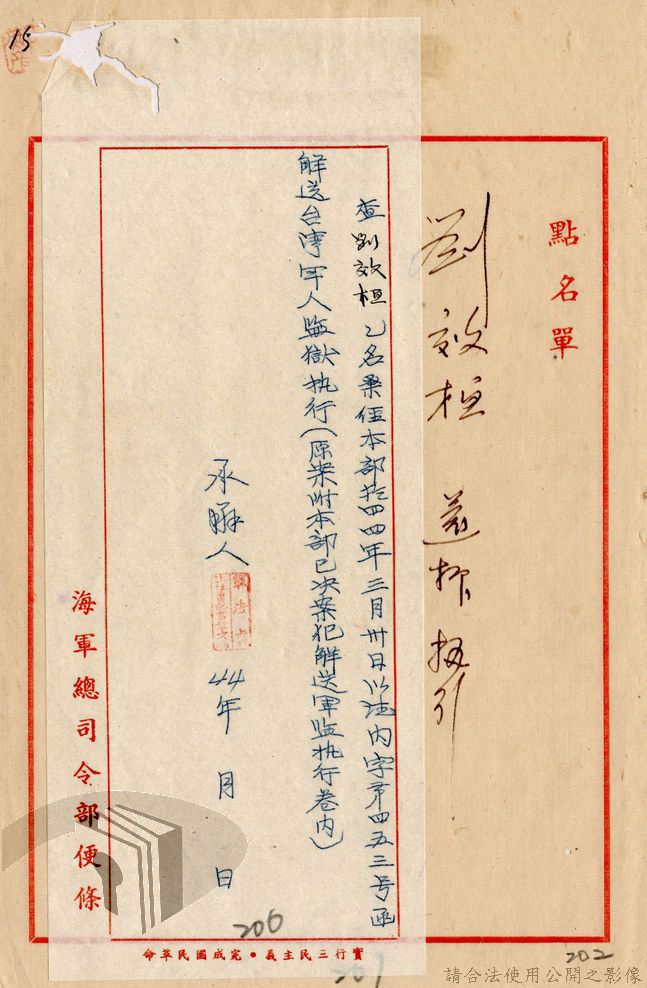 15
點名單
劉效桓
查劉效桓乙名業經本部於四四年三月卅日以法內字第四五三号函
解送台灣军人監獄执行(原案附本部已决案犯解送軍監执行卷內)
承辦人
軍法
44年 月 日
海軍總司令部便條
實行三民主義•完成國民革命
206
201
202
請合法使用公開之影像